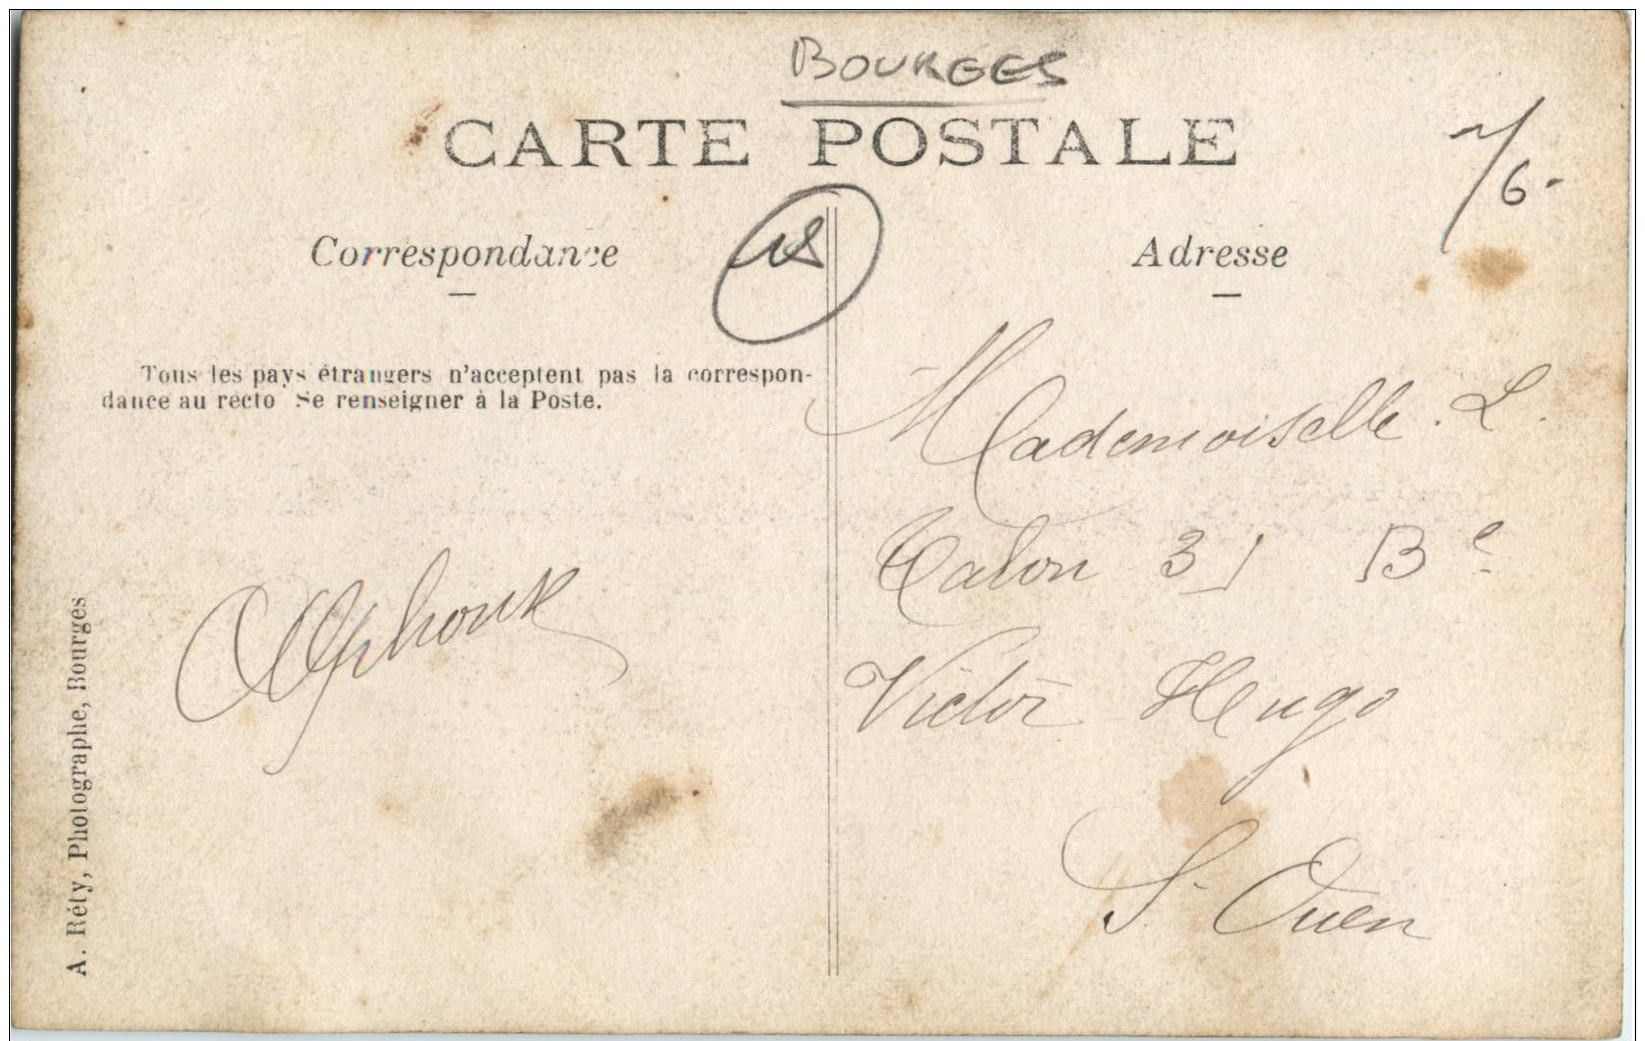 BOURGES
CARTE POSTALE
6.-
Correspondance
Adresse
Tous les pays étrangers n'acceptent pas la correspon-
dance au recto Se renseigner à la Poste.
Mademoiselle. L.
Talon 31 Bᵉ
Victor Hugo
S. Ouen
Alphonse
A. Réty, Photographe, Bourges